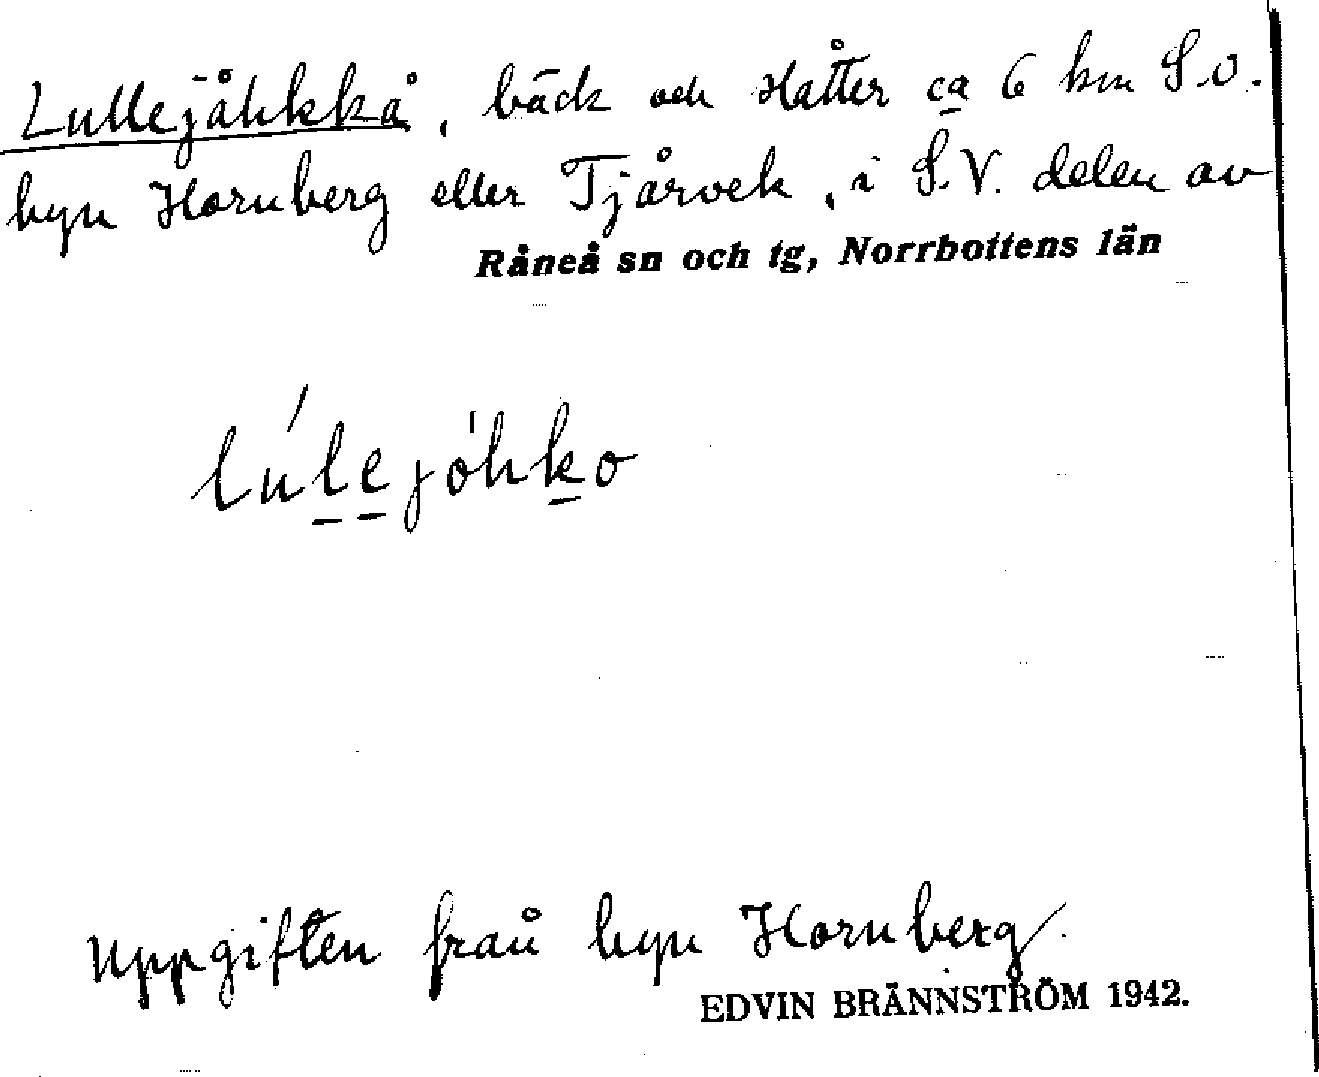 Lullejåhkkå, bäck och slåtter ca 6 km S.O.
byn Hornberg eller Tjårvek, i S.V. delen av
Råneå sn och tg, Norrbottens län
lúlejóhko
Uppgiften från byn Hornberg.
EDVIN BRÄNNSTRÖM 1942.